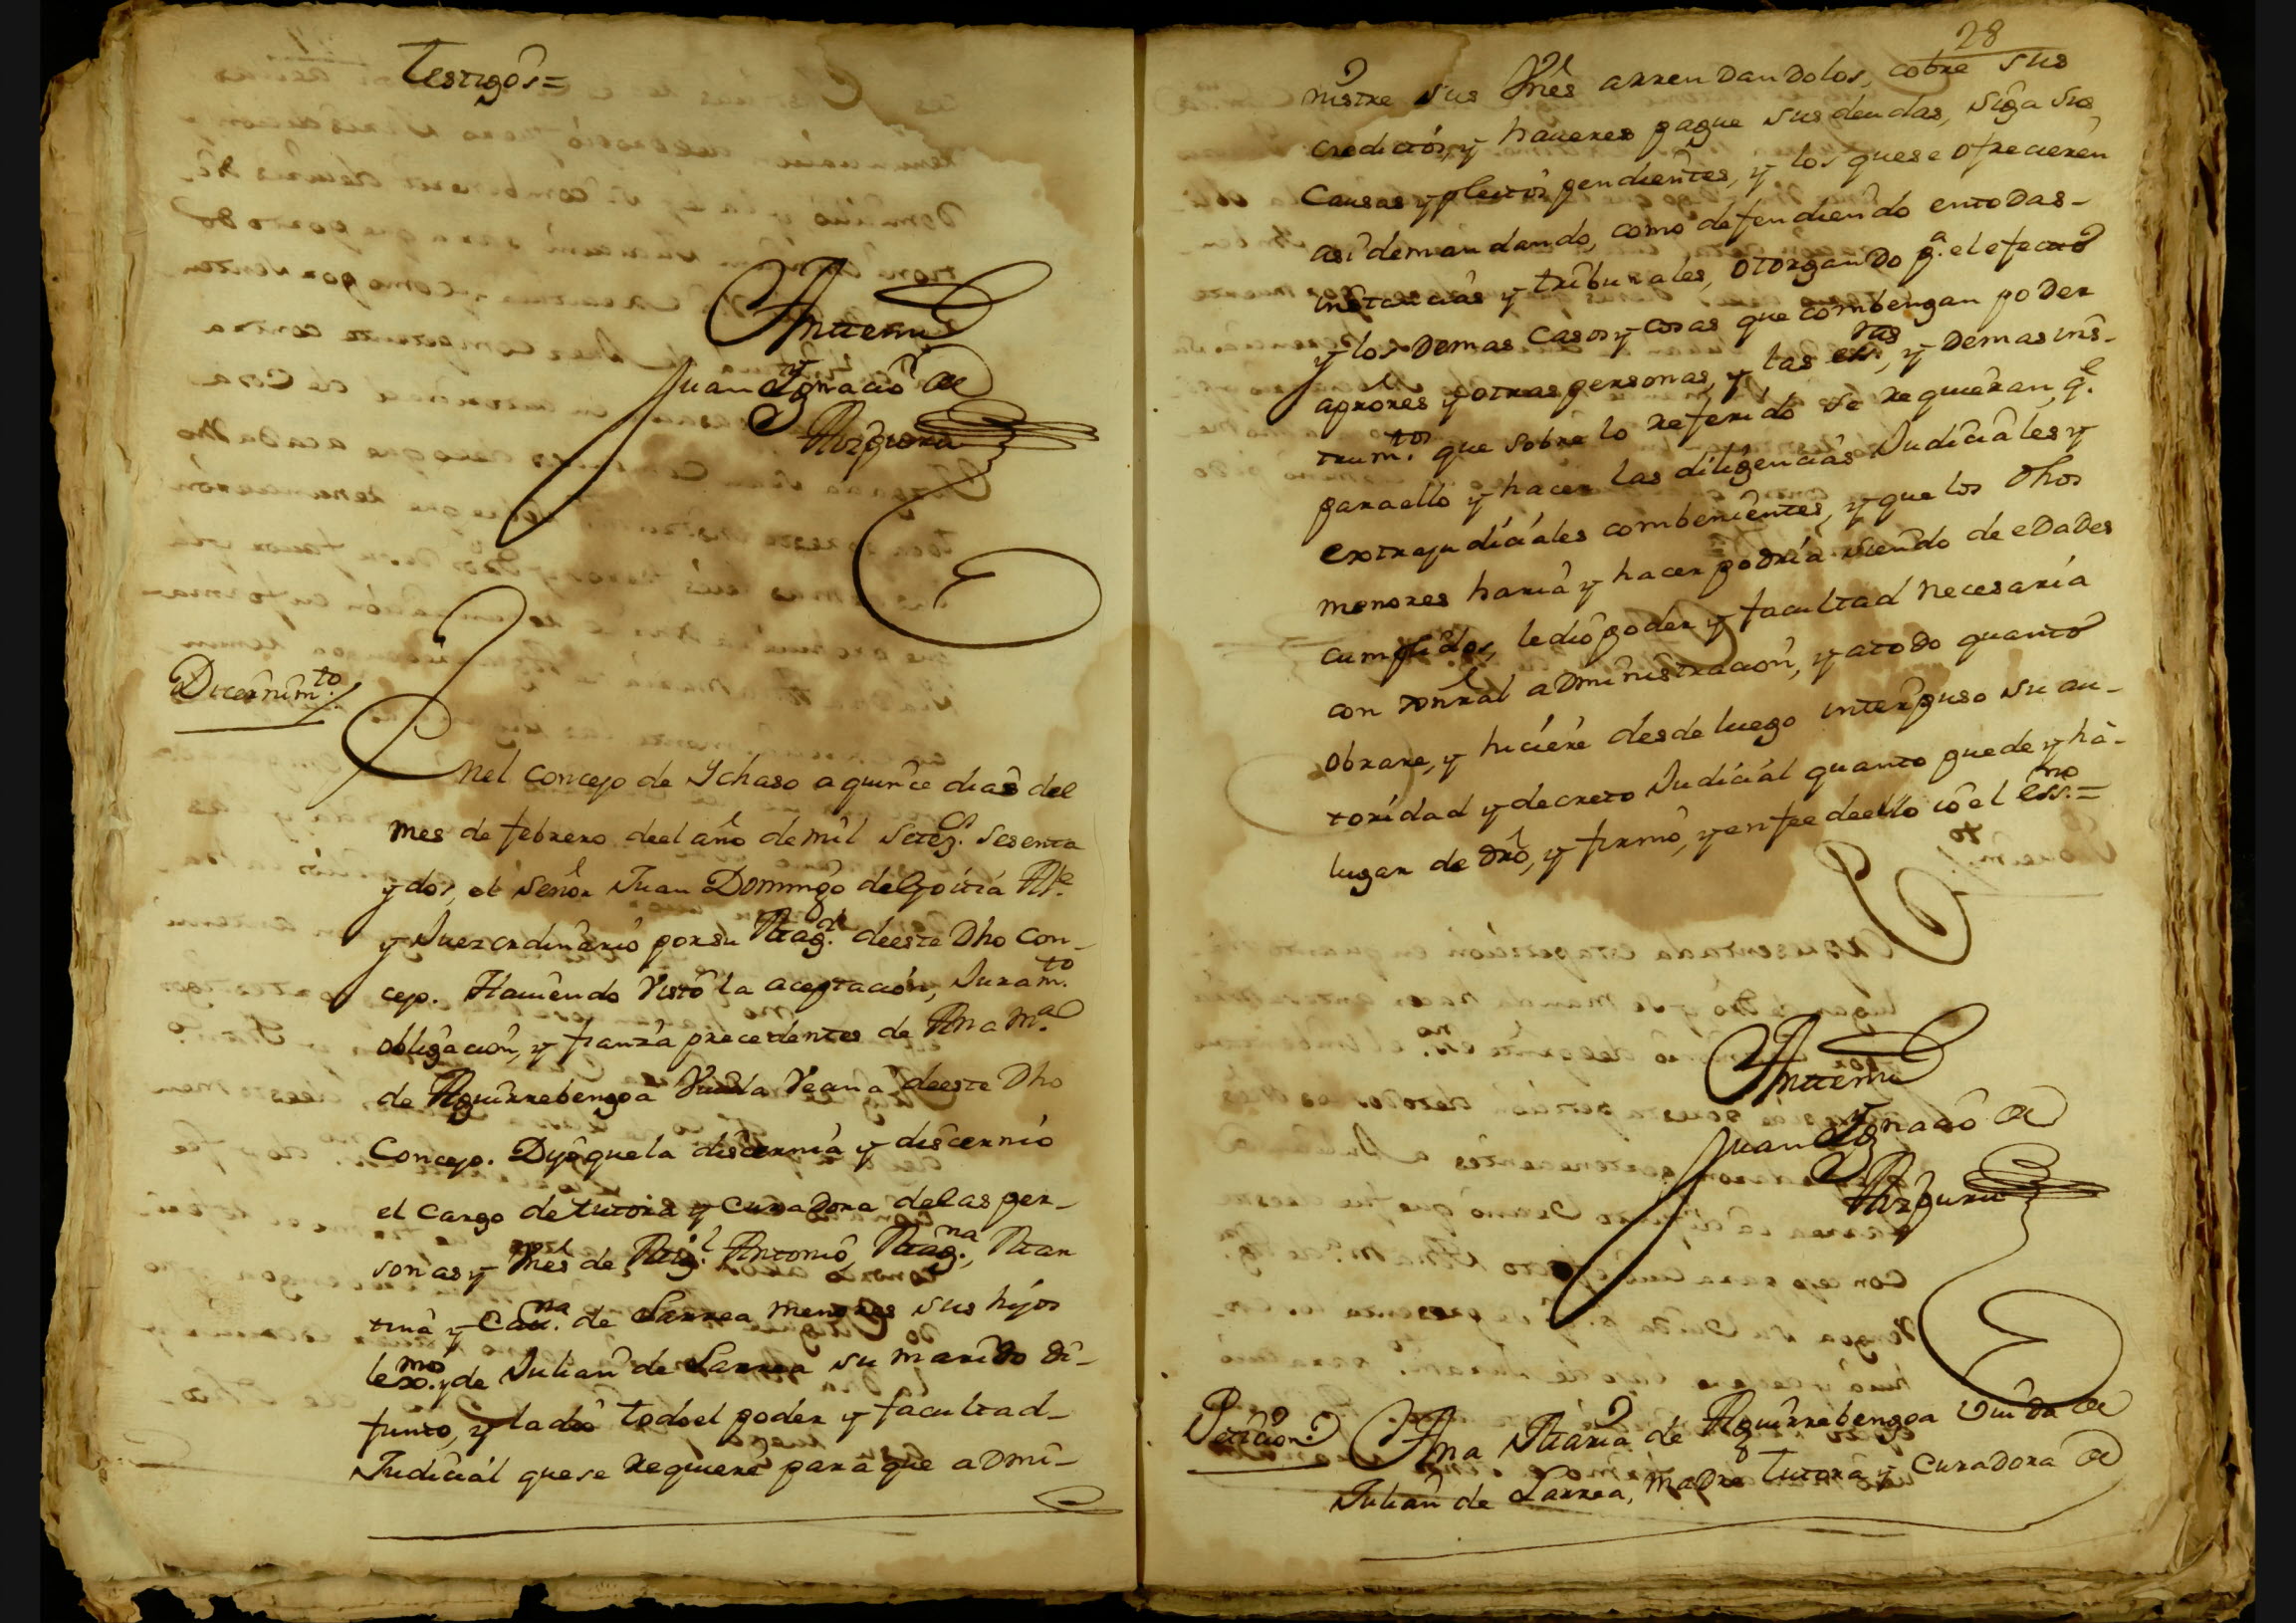 Testigos=
Anttemi
Juan Ygnacio de
Aizpuru
Dicernim.to
Enel concejo de Ychaso a quince dias del
mes de febrero deel año de mil setez.os sesenta
y dos, el señor Juan Domingo de Goitia Alc.e
y Juez ordinario por su Mag.d deeste Dho con-
cejo. Haviendo visto la aceptacion, Juram.to
obligacion, y fianza precedentes de Ana M.a
de Aguirrebengoa Viuda Vecina deeste Dho
Concejo. Dijo que la discernia y discernio
el cargo de tutora y curadora de las per-
sonas y vnes de Mig.l Antonio, Mag.na, Mar
tina y Cat.na de Larrea menores sus hijos
lex.mos y de Julian de Larrea su marido di-
funto, y la dio todo el poder y facultad-
Judicial que se requiere para que admi-
28
nistre sus vnes arrendandolos, cobre sus
creditos, y haveres pague sus deudas, siga sus
causas y pleitos pendientes, y los que se ofrecieren
asi demandando, como defendiendo en todas-
instancias y tribunales, otorgando p.a el efecto
y los demas casos y cosas que combengan poder
aprores y otras personas, y las ess.ras, y demas ins-
trum.tos que sobre lo referido se requieran, q.e
para ello y hacer las diligencias Judiciales y
extrajudiciales combenientes, y que los Dhos
menores haria y hacer podria siendo de edades
cumplidos, le dio poder y facultad necesaria
con gnral administracion, y a todo quanto
obrare, y hiciere desde luego interpuso su au-
toridad y decreto Judicial quanto puede y ha-
lugar de dro, y firmo, y en fee de ello io el ess.no=
Anttemi
Juan Ygnacio de
Aizpuru
Peticion
Ana Maria de Aguirrebengoa Viuda de
Julian de Larrea, madre tutora y curadora de